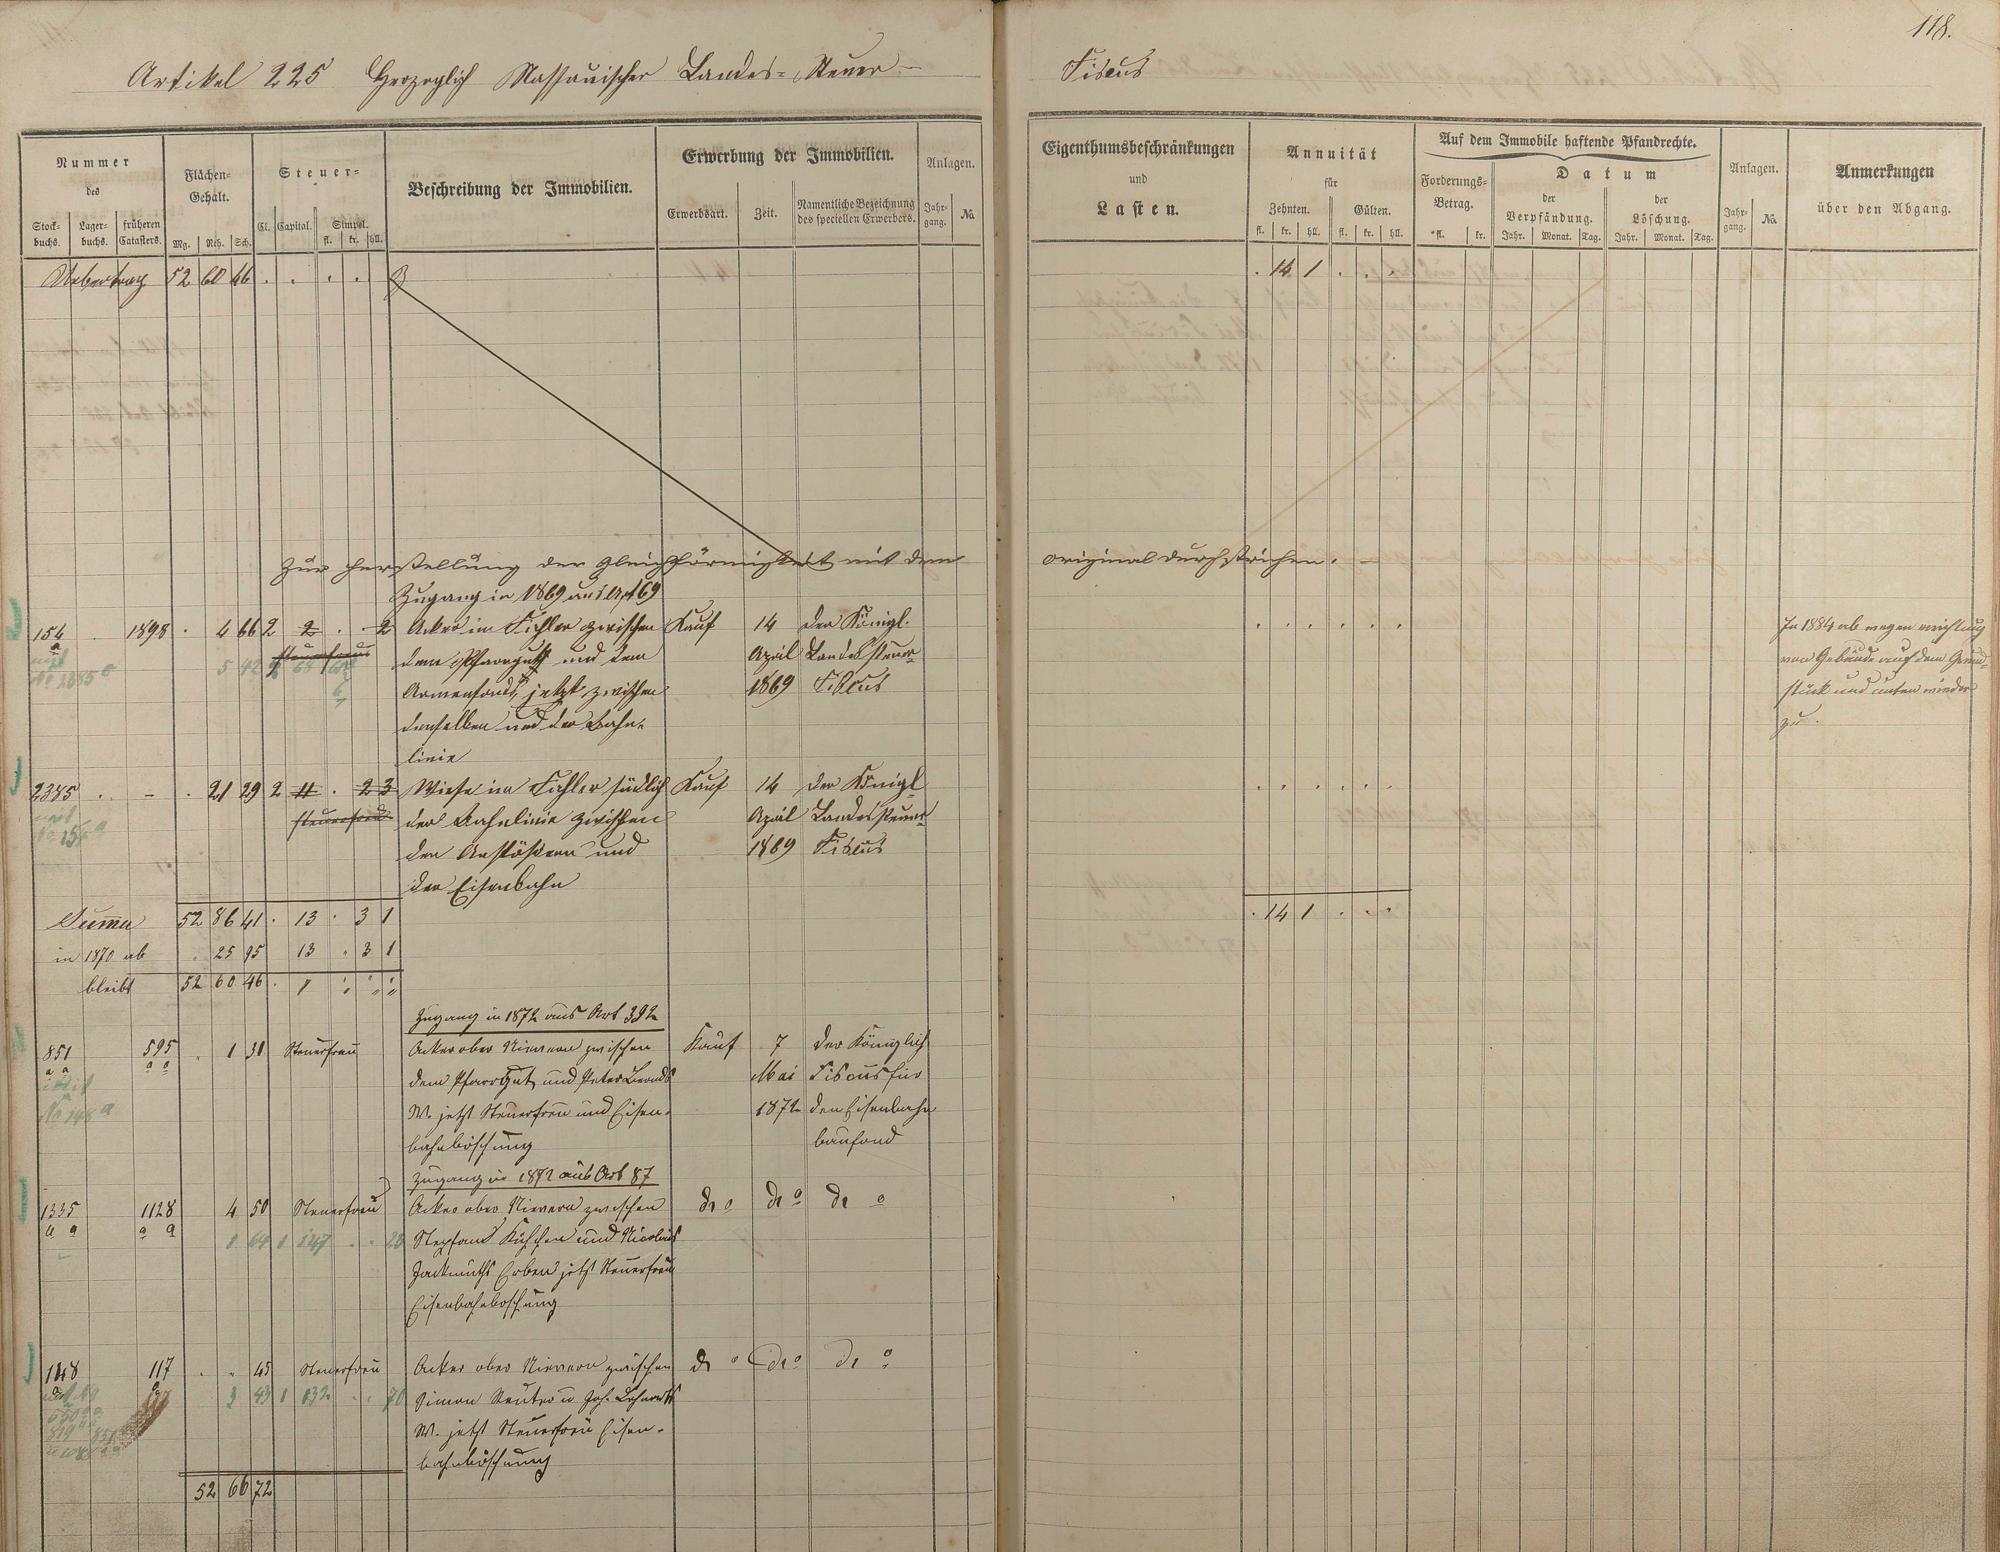 118.
Artikel 225 Herzoglich Nassauischer Landes-Steuer-Fiscus
Nummer des
Stock-buchs. Lager-buchs. früheren Catasters.
Flächen-Gehalt.
Mg. Rth. Sch.
Steuer-
Cl. Capital. Simpel.
fl. kr. hll.
Beschreibung der Immobilien.
Erwerbung der Immobilien.
Erwerbsart. Zeit. Namentliche Bezeichnung des speciellen Erwerbers.
Anlagen.
Jahr-gang. No.
Eigenthumsbeschränkungen
und
Lasten.
Annuität
für
Zehnten. Gülten.
fl. kr. hll. fl. kr. hll.
Auf dem Immobile haftende Pfandrechte.
Forderungs-Betrag.
fl. kr.
Datum
der Verpfändung. der Löschung.
Jahr. Monat. Tag. Jahr. Monat. Tag.
Anlagen.
Jahr-gang. No.
Anmerkungen
über den Abgang.
Uebertrag 52 60 46 . . . . . 14 1 . . .
Zur Herstellung der Gleichförmigkeit mit dem Original durchstrichen. —
Zugang in 1869 aus Art 69
154 . 1898 . 4 66 2 2 . . 2 Acker im Fichler zwischen Kauf 14 der Königl.
a steuerfrei dem Pfarrgut und dem April Landessteuer
Armenfonds, jetzt zwischen 1869 Fiscus
demselben und der Bahn-
linie
In 1884 ab wegen Errichtung
von Gebäude auf dem Grund-
stück und unten wieder
zu.
2345 . . – . 21 29 2 11 . 2 3 Wiese im Fichler südlich Kauf 14 der Königl
steuerfrei der Bahnlinie zwischen April Landessteuer
den Anstößern und 1869 Fiscus
der Eisenbahn
Summa 52 86 41 . 13 . 3 1 . 14 1 . . .
in 1870 ab . 25 95 13 . 3 1
bleibt 52 60 46
Zugang in 1872 aus Art 392
851 595 . 1 31 Steuerfrei Acker ober Nievern zwischen Kauf 7 der Königlich
a a a a dem Pfarrgut und Peter Mai Fiscus für
W. jetzt Steuerfrei und Eisen- 1872 den Eisenbahn
bahnböschung baufond
Zugang in 1872 aus Art 87
1335 1128 4 50 Steuerfrei Acker ober Nievern zwischen do do do
a a a a 1 64 1 147 . . 28 Stephan und Nicolaus
Erben jetzt Steuerfrei
Eisenbahnböschung
1148 117 . . 45 Steuerfrei Acker ober Nievern zwischen do do do
3 43 1 132 . . 70 Simon Reuter u Joh.
W. jetzt Steuerfrei Eisen-
bahnböschung
52 66 72